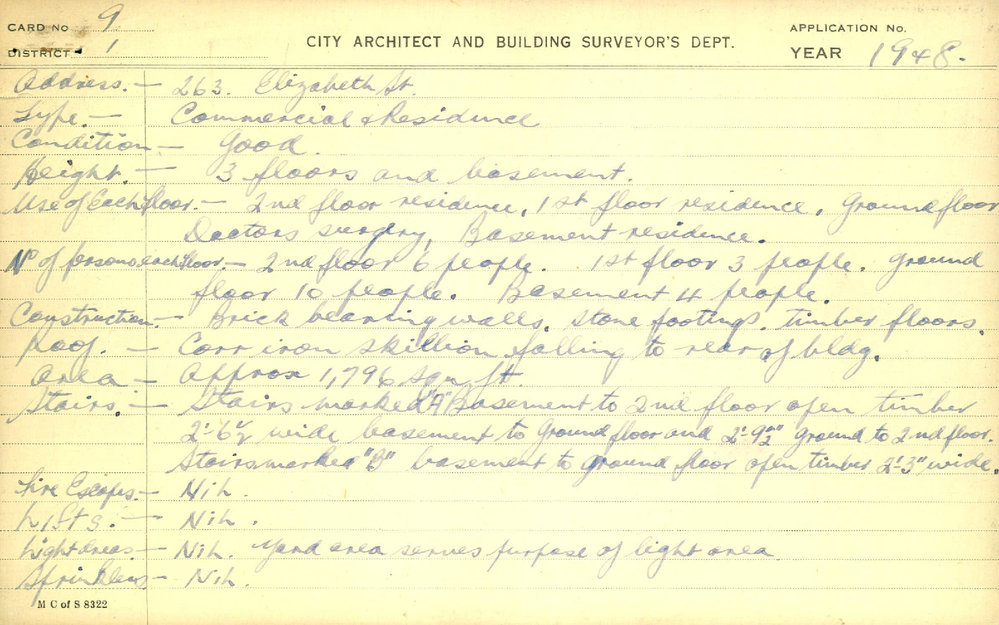 CARD No 9
DISTRICT 1
CITY ARCHITECT AND BUILDING SURVEYOR'S DEPT.
APPLICATION No.
YEAR 1948.
Address. — 263. Elizabeth St.
Type. — Commercial & Residence
Condition — Good.
Height. — 3 floors and basement.
Use of Each floor. — 2nd floor residence, 1st floor residence, Ground floor
Doctors surgery, Basement residence.
No of persons each floor. — 2nd floor 6 people. 1st floor 3 people. Ground
floor 10 people. Basement 4 people.
Construction. — Brick bearing walls. Stone footings. timber floors.
Roof. — Corr iron skillion falling to rear of bldg.
Area — Approx 1,796 sqr ft.
Stairs. — Stairs marked "A" Basement to 2nd floor open timber
2'-6½" wide basement to Ground floor and 2'-9½" Ground to 2nd floor.
Stairs marked "B" basement to ground floor open timber 2'3" wide.
Fire Escapes. — Nil.
Lifts. — Nil.
Light Areas. — Nil. Yard area serves purpose of light area
Sprinklers — Nil.
M C of S 8322